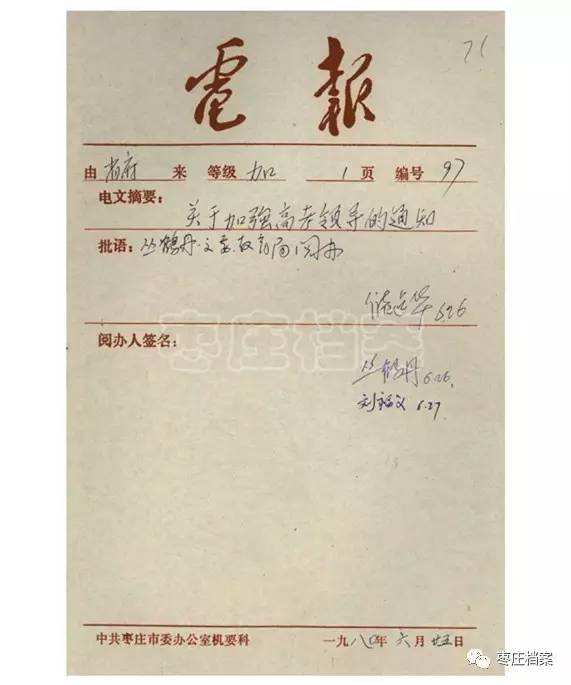 71
電報
由 省府 来 等级 加 1 页 编号 97
电文摘要：
关于加强高考领导的通知
批语：丛鹤丹、文委、教育局阅办
6.26
枣庄档案
阅办人签名：
丛鹤丹 6.26.
刘 6.27.
中共枣庄市委办公室机要科 一九八〇年 六月 廿五日
枣庄档案